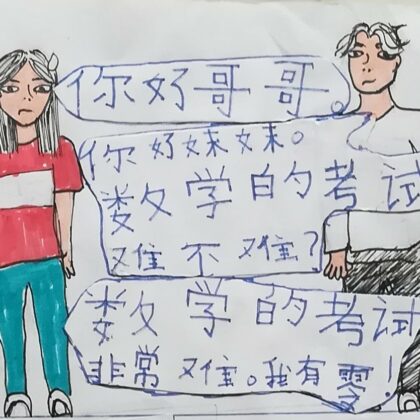 你好哥哥。
你好妹妹。
数学的考试
难不难？
数学的考试
非常难。我有零！